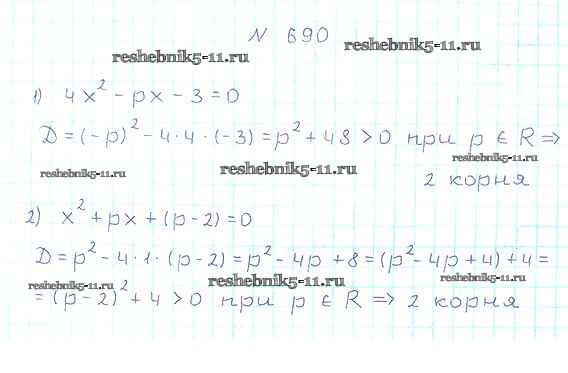 N 690
reshebnik5-11.ru
reshebnik5-11.ru
1) 4x² - px - 3 = 0
D = (-p)² - 4 · 4 · (-3) = p² + 48 > 0 при p ∈ R ⇒
reshebnik5-11.ru
reshebnik5-11.ru
reshebnik5-11.ru
2 корня
2) x² + px + (p - 2) = 0
D = p² - 4 · 1 · (p - 2) = p² - 4p + 8 = (p² - 4p + 4) + 4 =
reshebnik5-11.ru
reshebnik5-11.ru
reshebnik5-11.ru
= (p - 2)² + 4 > 0 при p ∈ R ⇒ 2 корня